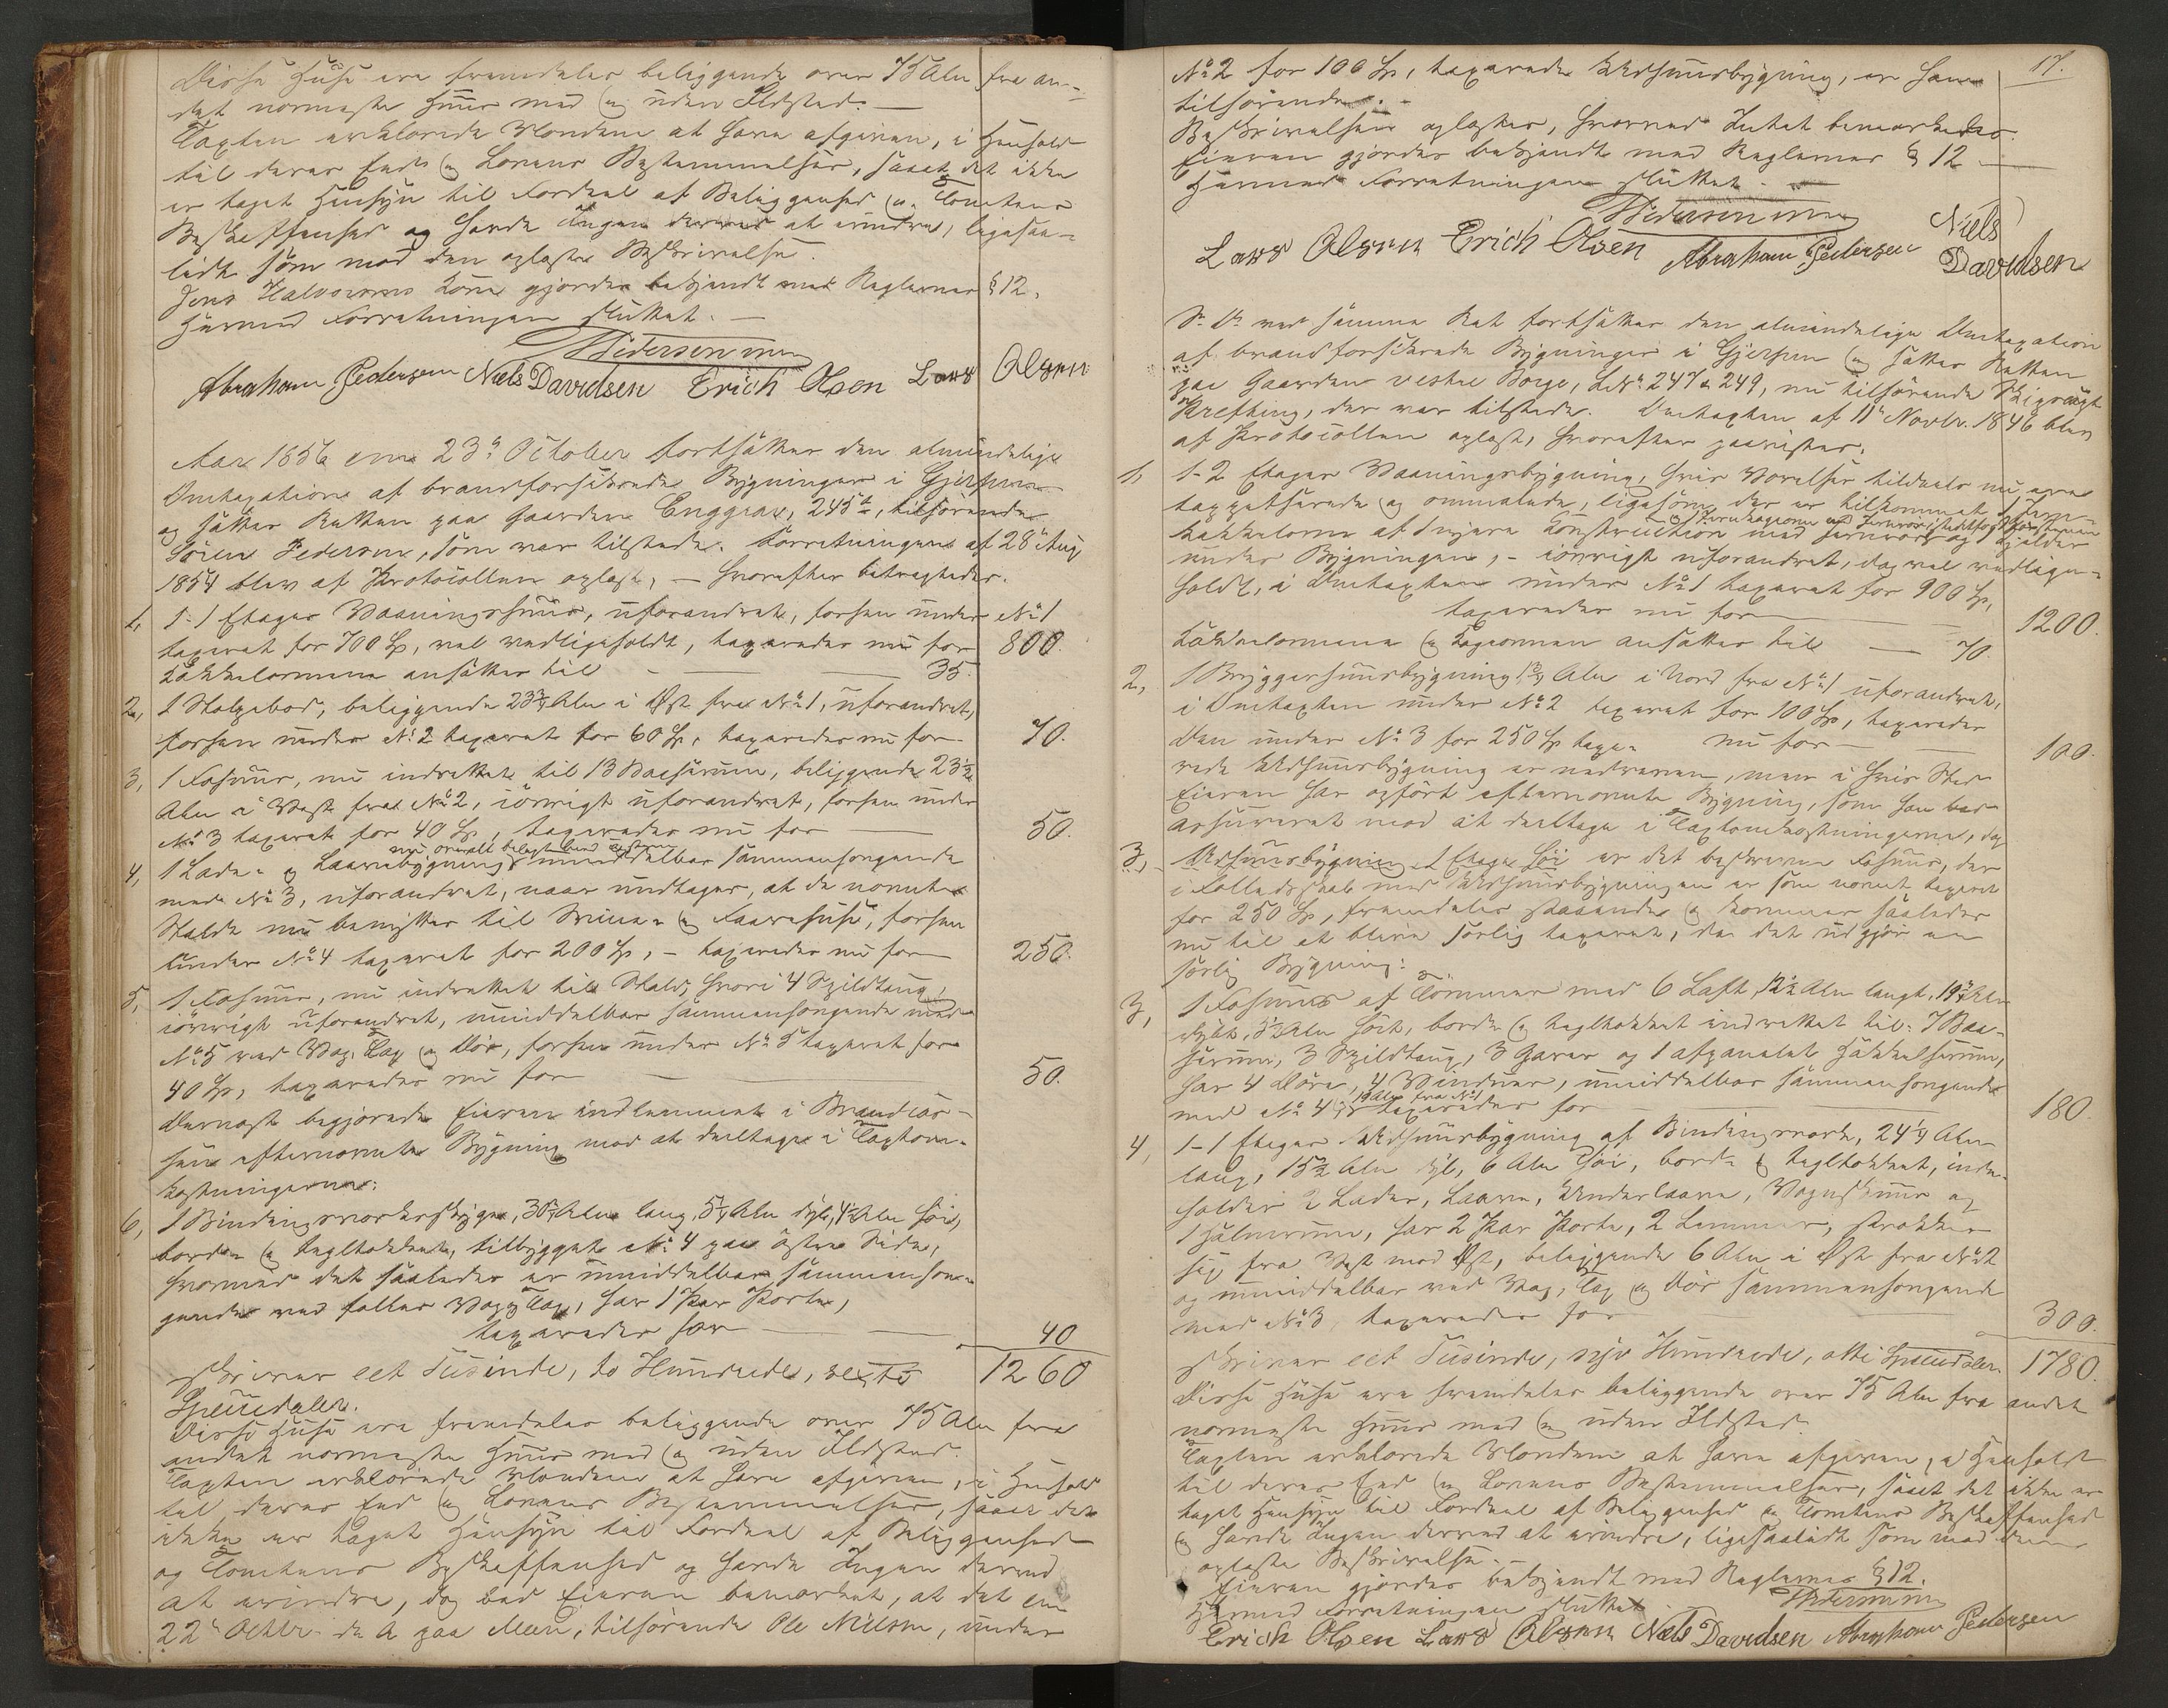 Disse Huse ere fremdeles beliggende over 75 Alen fra an-
det nærmeste Huus med og uden Ildsted. —
Taxten erklærede Mændene at have afgiven, i Henhold
til deres Eed og Lovens Bestemmelser, saaat det ikke
er taget Hensyn til Fordeel af Beliggenhed og Tomtens
Beskaffenhed og havde Ingen derved at erindre, ligesaa-
lidt som mod den oplæste Beskrivelse.
Jens Halvorsens Kone gjordes bekjendt med Reglernes § 12.
Hermed Forretningen sluttet. —
Pedersen
Abraham Pedersen Niels Davidsen Erich Olsen Lars Olsen
Aar 1856 den 23de October fortsattes den almindelige
Omtaxation af brandforsikrede Bygninger i Gjerpen
og sattes Retten paa Gaarden Enggrav, 245a, tilhørende
Søren Pedersen, som var tilstede. Forretningen af 28de Aug
1854 blev af Protocollen oplæst, — hvorefter besigtedes.
1, 1-1 Etages Vaaningshuus, uforandret, forhen under No 1
taxeret for 700 Sp, vel vedligeholdt, taxeredes nu for 800.
Kakkelovnene ansattes til — 35.
2, 1 Stolpebod, beliggende 23¾ Alen i Øst fra No 1, uforandret,
forhen under No 2 taxeret for 60 Sp, taxeredes nu for 70.
3, 1 Fæhuus, nu indrettet til 13 Baaserum, beliggende 23½
Alen i Vest fra No 2, iøvrigt uforandret, forhen under
No 3 taxeret for 40 Sp, taxeredes nu for — 50.
4, 1 Lade- og Laavebygning umiddelbar sammenhængende
med No 3, uforandret, naar undtages, at de nævnte
Stalde nu benyttes til Svine- og Faarehuse, forhen
under No 4 taxeret for 200 Sp, — taxeredes nu for 250.
5, 1 Fæhuus, nu indrettet til Stald, hvori 4 Spildtoug,
iøvrigt uforandret, umiddelbar sammenhængende med
No 5 ved Væg, Tag og Dør, forhen under No 5 taxeret for
40 Sp, taxeredes nu for — 50.
Dernæst begjærede Eieren indlemmet i Brandcas-
sen efternævnte Bygning mod at deeltage i Taxtom-
kostningerne:
6, 1 Bindingsværksskygge, Alen lang, Alen dyb, Alen høi,
bord- og teglhækket, tilbygget No 4 paa østre Side,
hvormed det saaledes er umiddelbar sammenhæn-
gende ved fælles Væg og Tag, har 1 Par Porte,
taxeredes for — 40
skriver eet Tusinde, to Hundrede, sexti 1260
Speciedaler.
Disse Huse ere fremdeles beliggende over 75 Alen fra
andet nærmeste Huus med og uden Ildsted.
Taxten erklærede Mændene at have afgiven, i Henhold
til deres Eed og Lovens Bestemmelser, saaat det
ikke er taget Hensyn til Fordeel af Beliggenhed
og Tomtens Beskaffenhed og havde Ingen derved
at erindre, dog bad Eieren bemærket, at det den
22de Octbr. d. A. paa Meen, tilhørende Ole Nilsen, under
17.
No 2 for 100 Sp, taxerede Udhuusbygning, er ham
tilhørende. -
Beskrivelsen oplæstes, hvorved Intet bemærkedes.
Eieren gjordes bekjendt med Reglernes § 12 —
Hermed Forretningen sluttet. —
Pedersen
Lars Olsen Erich Olsen Abraham Pedersen Niels
Davidsen
S. D. ved samme Ret fortsattes den almindelige Omtaxation
af brandforsikrede Bygninger i Gjerpen og sattes Retten
paa Gaarden vestre Borge, L No 247 & 249, nu tilhørende
Prefting, der var tilstede. Omtaxten af 11te Novbr. 1846 blev
af Protocollen oplæst, hvorefter paavistes.
1, 1-2 Etages Vaaningsbygning, hvis Værelser tildeels nu ere
tappetserede og ommalede, ligesom der er tilkommet
Kakkelovne af nyere Construction med Jernrør og Kjelder
under Bygningen, - iøvrigt uforandret, dog vel vedlige-
holdt, i Omtaxten under No 1 taxeret for 900 Sp,
taxeredes nu for — 1200.
Kakkelovnene og Bagerovnen ansattes til — 70.
2, 1 Bryggerhuusbygning, Alen i Nord fra No 1 uforandret,
i Omtaxten under No 2 taxeret for 100 Sp, taxeredes
nu for — 100.
Den under No 3 for 250 Sp taxe-
rede Udhuusbygning er nedreven, men i hvis Sted
Eieren har opført efternævnte Bygning, som han bad
assureret mod at deeltage i Taxtomkostningerne, dog
3, Udhuusbygning 1 Etage høi er det beskrevne Fæhuus, der
i Fælledsskab med Udhuusbygningen er som nævnt taxeret
for 250 Sp, fremdeles staaende og kommer saaledes
nu til at blive særlig taxeret, da det udgjør en
særlig Bygning:
3, 1 Fæhuus af Tømmer med 6 Laft, 12½ Alen langt, Alen
dybt, Alen høit, bord- og teglhækket indrettet til: 7 Baa-
serum, 3 Spildtoug, 3 Garer og 1 afpanelet Hakkelserum,
har 4 Døre, 4 Vinduer, umiddelbar sammenhængende
med No 4, taxeredes for — 180.
4, 1-1 Etages Udhuusbygning af Bindingsværk, 24¼ Alen
lang, 15½ Alen dyb, 6 Alen høi, bord- og teglhækket, inde-
holder 2 Lader, Laave, Underlaave, Vognskuur og
1 Halmrum, har 2 Par Porte, 2 Lemmer, strækker
sig fra Vest mod Øst, beliggende 6 Alen i Øst fra
og umiddelbar ved Væg, Tag og Dør sammenhængende
med No 3, taxeredes for — 300.
skriver eet Tusinde, syv Hundrede, otti Speciedaler 1780.
Disse Huse ere fremdeles beliggende over 75 Alen fra andet
nærmeste Huus med og uden Ildsted.
Taxten erklærede Mændene at have afgiven, i Henhold
til deres Eed og Lovens Bestemmelser, saaat det ikke er
taget Hensyn til Fordeel af Beliggenhed og Tomtens Beskaffenhed
og havde Ingen derved at erindre, ligesaalidt som mod den
oplæste Beskrivelse.
Eieren gjordes bekjendt med Reglernes § 12.
Hermed Forretningen sluttet.
Pedersen
Erich Olsen Lars Olsen Niels Davidsen Abraham Pedersen